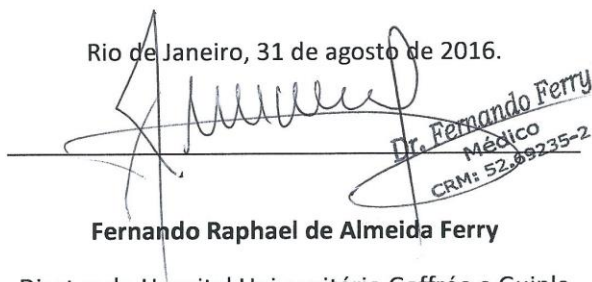 Rio de Janeiro, 31 de agosto de 2016.
Dr. Fernando Ferry
Médico
CRM: 52.69235-2
Fernando Raphael de Almeida Ferry
Diretor do Hospital Universitário Gaffrée e Guinle